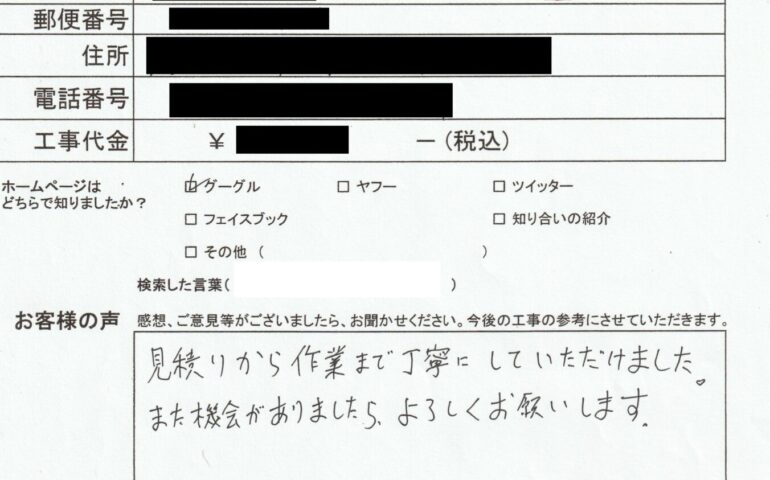 郵便番号
住所
電話番号
工事代金 ¥ ー(税込)
ホームページは
どちらで知りましたか？
☑グーグル □ヤフー □ツイッター
□フェイスブック □知り合いの紹介
□その他（ ）
検索した言葉( )
お客様の声 感想、ご意見等がございましたら、お聞かせください。今後の工事の参考にさせていただきます。
見積りから作業まで丁寧にしていただけました。
また機会がありましたら、よろしくお願いします。